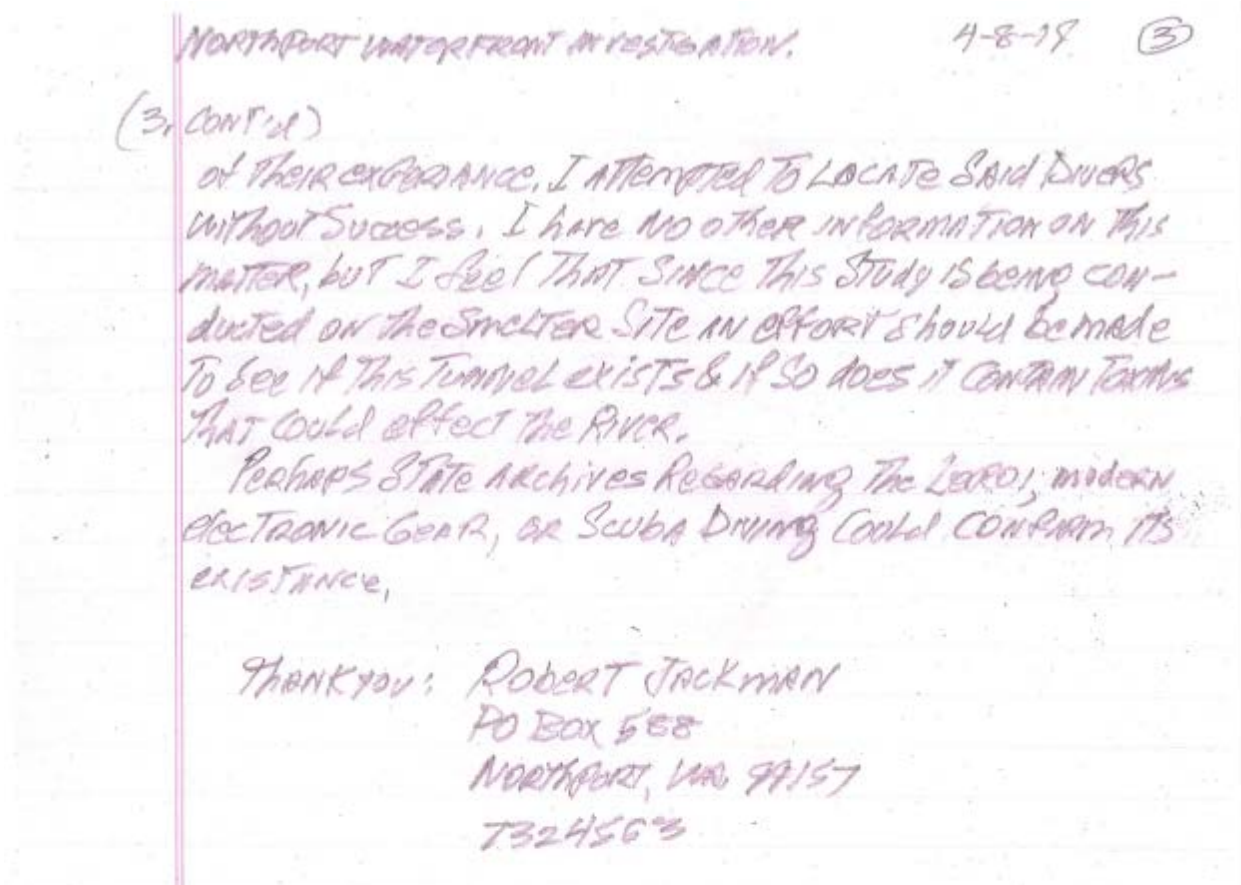 NORTHPORT WATERFRONT INVESTIGATION. 4-8-19 3
(3. CONT'd)
of Their experiance. I Attempted To Locate Said Divers
without Success. I have No other information on This
matter, but I feel That Since This Study is being con-
ducted on the Smelter Site an effort should be made
To see if This Tunnel exists & if so does it contain Toxins
That could effect The River.
Perhaps State Archives Regarding The Leroi, modern
electronic Gear, or Scuba Diving Could confirm its
existance.
Thank you: Robert Jackman
PO Box 588
Northport, WA 99157
7324563